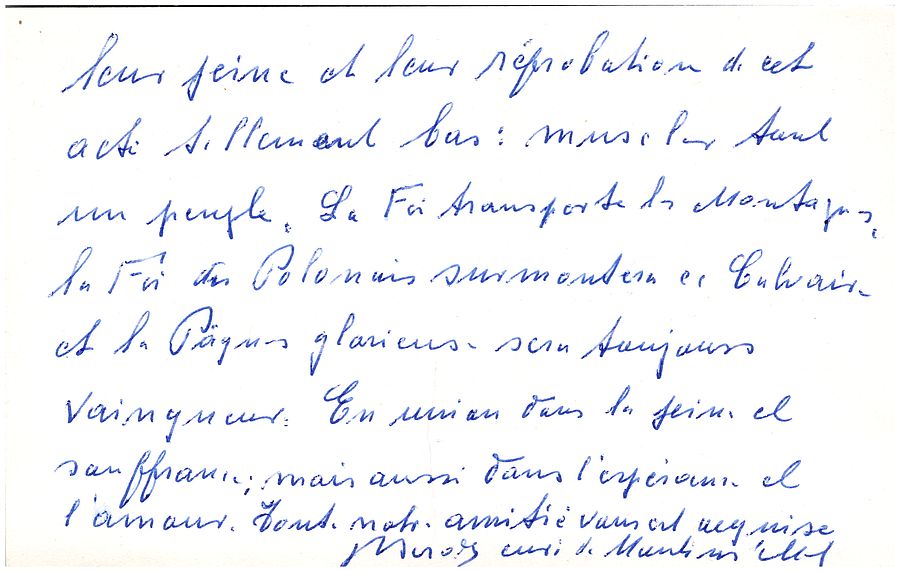 leur peine et leur réprobation de cet
acte tellement bas : museler tout
un peuple. La Foi transporte les Montagnes,
la Foi des Polonais surmontera ce Calvaire
et la Pâques glorieuse sera toujours
vainqueur. En union dans la peine et
souffrance ; mais aussi dans l'espérance et
l'amour. Toute notre amitié vous est acquise
curé de